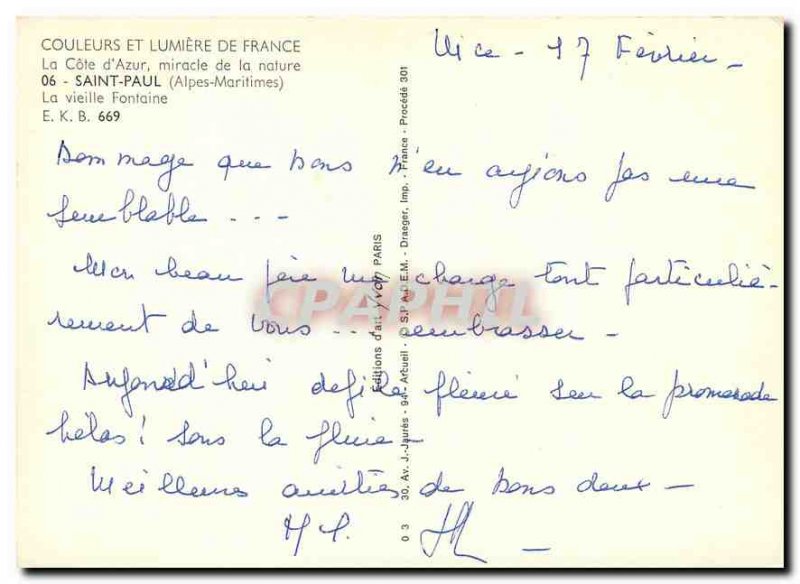 COULEURS ET LUMIÈRE DE FRANCE
La Côte d'Azur, miracle de la nature
06 - SAINT-PAUL (Alpes-Maritimes)
La vieille Fontaine
E. K. B. 669
Nice - 17 Février -
Dommage que nous n'en ayions pas une
semblable . . -
Mon beau père me charge tout particuliè-
rement de vous ... embrasser -
Aujourd'hui défilé fleuri sur la promenade
hélas! sous la pluie -
Meilleures amitiés de nous deux -
Editions d'art Yvon PARIS
30, Av. J.-Jaurès - 94 - Arcueil - © S.P.A.D.E.M. - Draeger, Imp. - France - Procédé 301
0 3
CPAPHIL